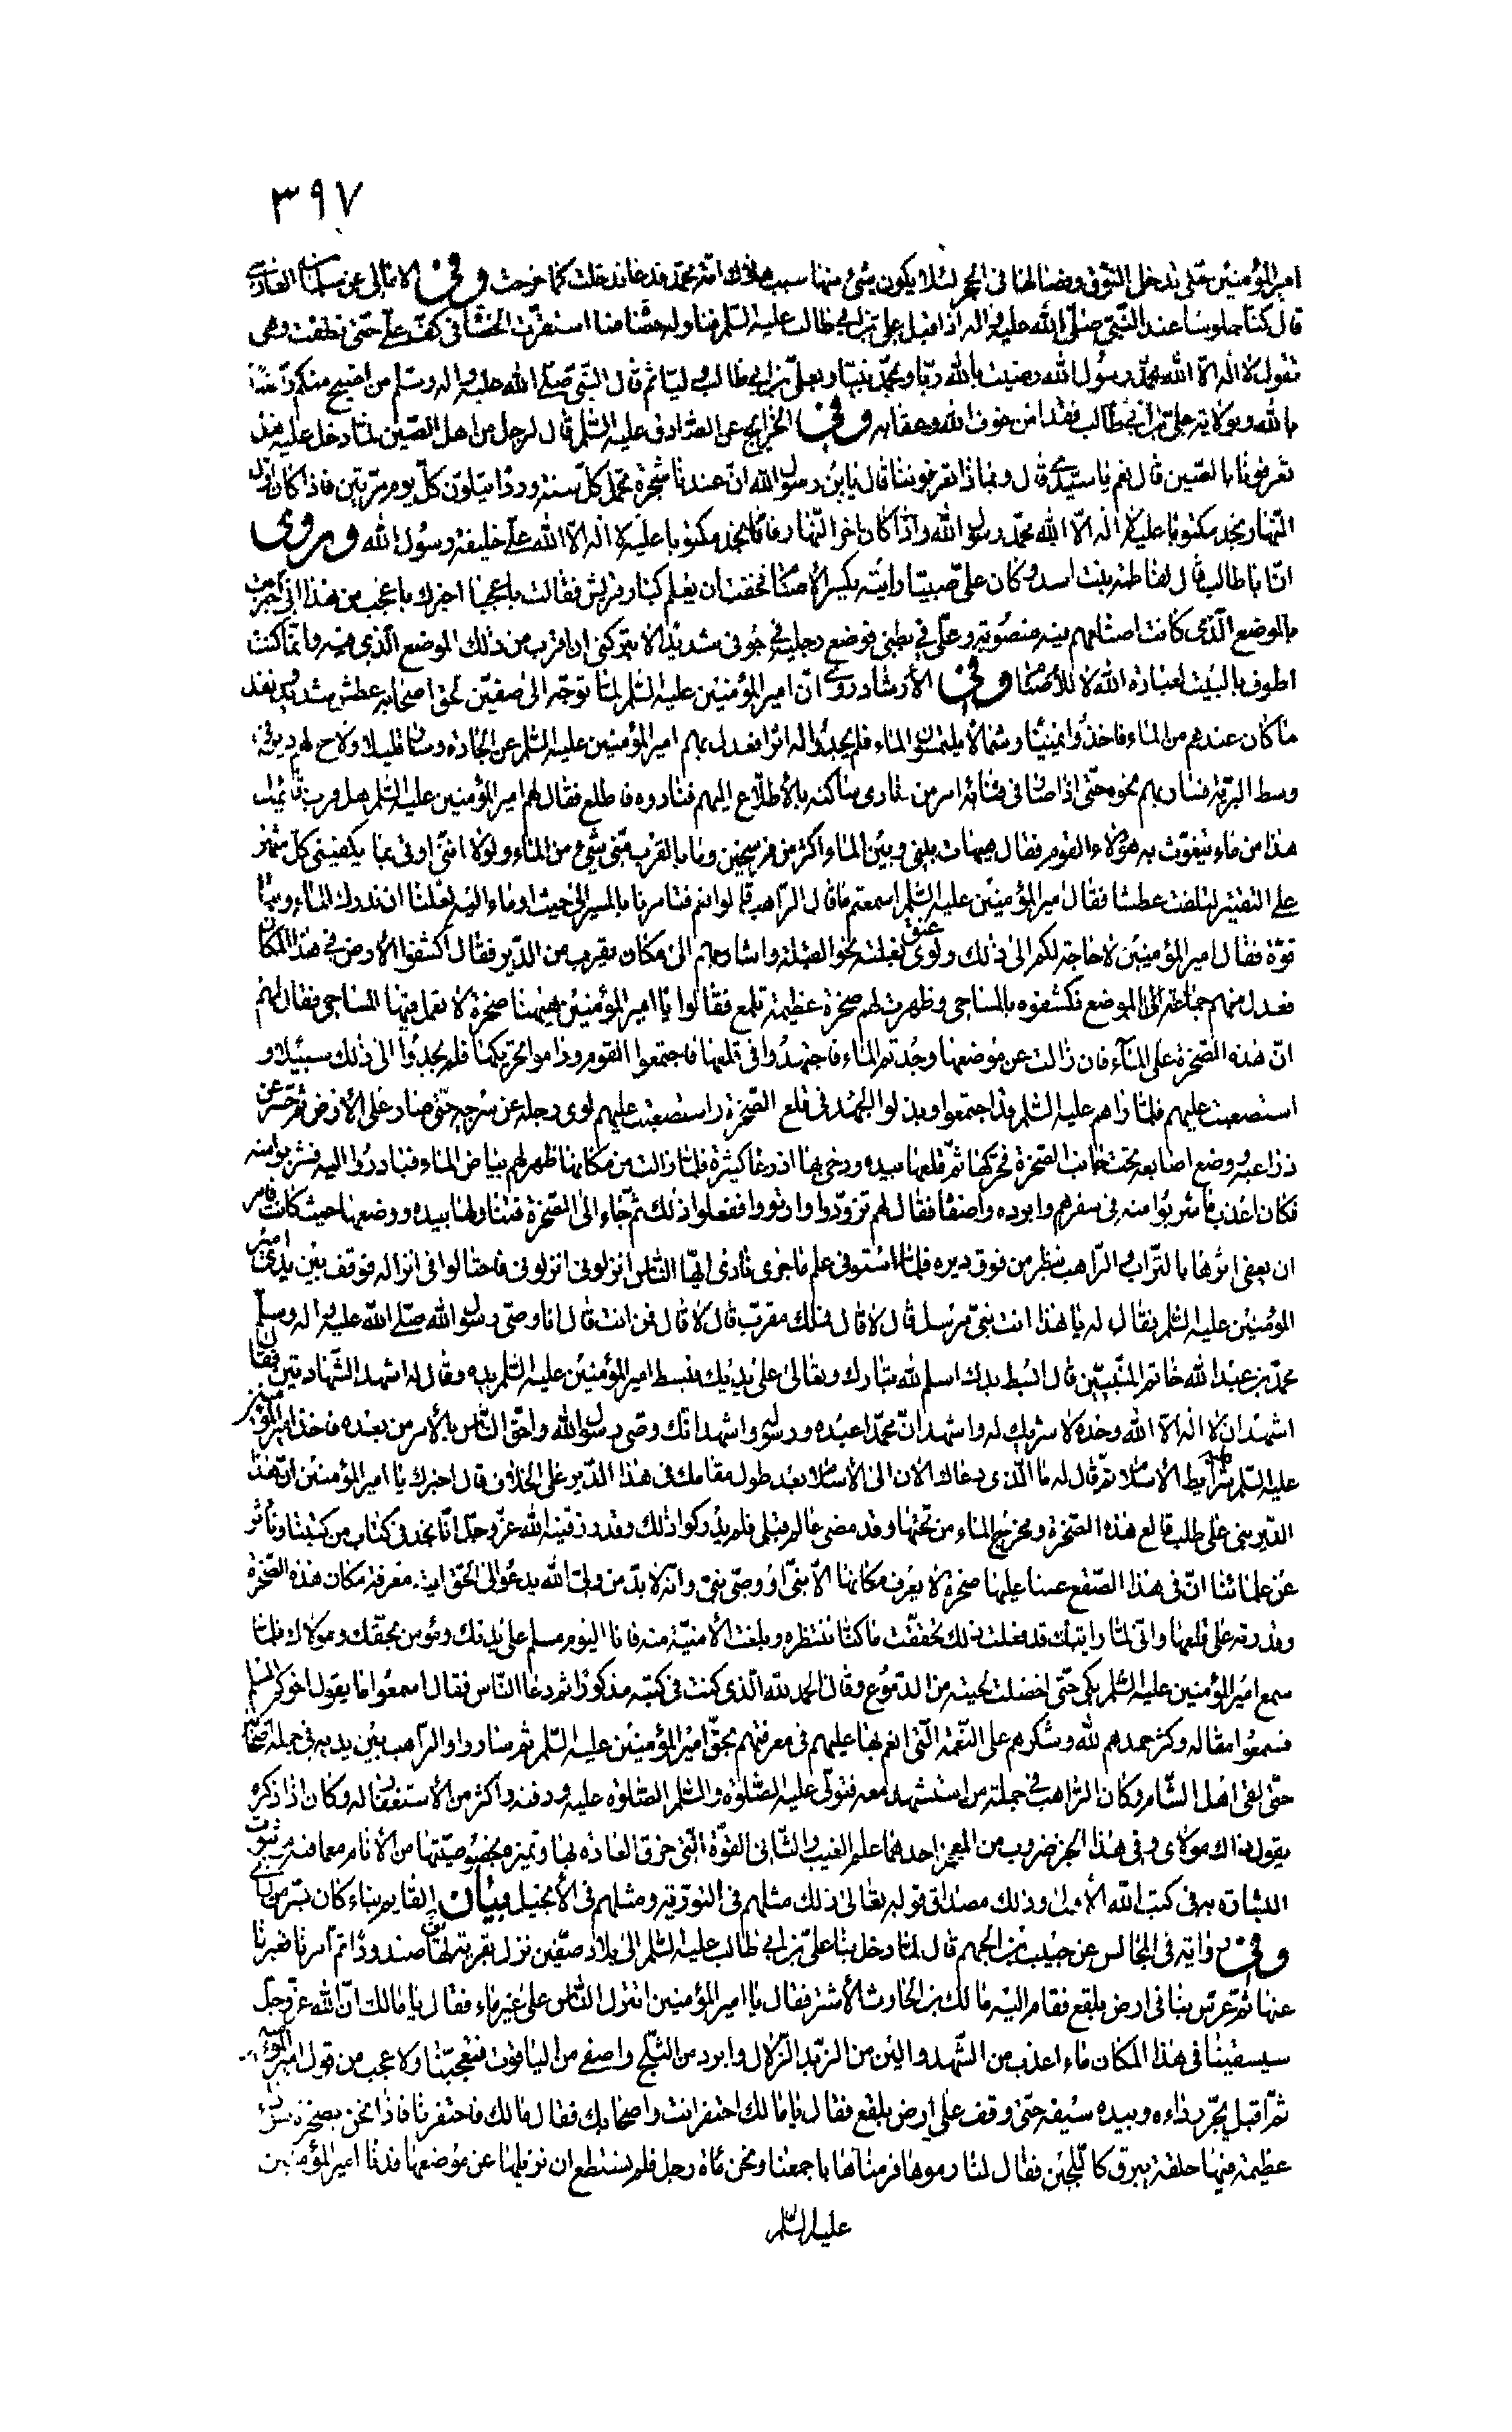 ٣٩٧
امير المؤمنين حتى يدخل الشوق وضالها فى الحجر لئلا يكون شئ منها سبب هلاك امّة محمّد فدعا فدخلت كما خرجت وفى الامالى عن سلمان الفارسى
قال كنّا جلوسا عند النّبىّ صلّى الله عليه واله اذ اقبل علىّ بن ابى طالب عليه السّلم فناوله حصاة فما استقرّت الحصاة فى كفّ علىّ حتّى نطقت وهى
تقول لا اله الّا الله محمّد رسول الله رضيت بالله ربّا وبمحمّد نبيّا وبعلىّ بن ابى طالب وليّا ثم قال النّبى صلّى الله عليه واله وسلّم من اصبح منكم راضيا
بالله وبولاية علىّ بن ابى طالب فقد امن خوف الله وعقابه وفى الخرايج عن الصّادق عليه السّلم قال لرجل من اهل الصّين لمّا دخل عليه
تعرفونا بالصّين قال نعم يا سيّدى قال وبماذا تعرفوننا قال يابن رسول الله انّ عندنا شجرة تحمل كلّ سنة وردا يتلوّن كلّ يوم مرّتين فاذا كان اوّل
النّهار نجد مكتوبا عليه لا اله الّا الله محمّد رسول الله واذا كان اخر النّهار فانّا نجد مكتوبا عليه لا اله الّا الله علىّ خليفة رسول الله وروى
انّ ابا طالب قال لفاطمة بنت اسد وكان علىّ صبيّا رايته يكسر الأصنام فخفت ان يعلم كبار قريش فقالت يا عجبا اخبرك باعجب من هذا انّى اجتزت
بالموضع الّذى كانت اصنامهم فيه منصوبة وعلىّ فى بطنى فوضع رجليه فى جوفى شديدا لا يتركنى ان اقرب من ذلك الموضع الّذى فيه وانّما كنت
اطوف بالبيت لعبادة الله لا للأصنام وفى الأرشاد روى انّ امير المؤمنين عليه السّلم لمّا توجّه الى صفّين لحق اصحابه عطش شديد ونفد
ما كان عندهم من الماء فاخذوا يمينا وشمالا يلتمسون الماء فلم يجدوا له اثرا فعدل بهم امير المؤمنين عليه السّلم عن الجادة وسار قليلا ولاح لهم دير فى
وسط البريّة فسار بهم نحوه حتّى اذا صار فى فنائه امر من نادى ساكنه بالأطّلاع اليهم فنادوه فاطلع فقال لهم امير المؤمنين عليه السّلم هل قرب قائمك
هذا من ماء يتغوّث به هؤلاء القوم فقال هيهات بينى وبين الماء اكثر من فرسخين وما بالقرب منّى شئ من الماء ولولا انّنى اوتى بما يكفينى كلّ شهر
على التقتير لتلفت عطشا فقال امير المؤمنين عليه السّلم اسمعتم ما قال الرّاهب قالوا نعم فتامرنا بالمسير الى حيث اوماء اليه لعلّنا ان ندرك الماء وبنا
قوّة فقال امير المؤمنين لا حاجة لكم الى ذلك ولوى عنق بغلته نحو القبلة واشار بهم الى مكان بقرب من الدّير فقال اكشفوا الأرض فى هذا المكان
فعدل منهم جماعة الى الموضع فكشفوه بالمساحى وظهرت لهم صخرة عظيمة تلمع فقالوا يا امير المؤمنين هيهنا صخرة لا تعمل فيها المساحى فقال لهم
انّ هذه الصّخرة على الماء فان زالت عن موضعها وجدتم الماء فاجتهدوا فى قلعها فاجتمعوا القوم وراموا تحريكها فلم يجدوا الى ذلك سبيلا و
استصعبت عليهم فلمّا راهم عليه السّلم قد اجتمعوا وبذلوا الجهد فى قلع الصّخرة واستصعبت عليهم لوى رجله عن سرجه حتّى صار على الأرض ثم حسر عن
ذراعيه ووضع اصابعه تحت جانب الصّخرة فحرّكها ثمّ قلعها بيده ودحى بها اذرعا كثيرة فلمّا زالت من مكانها ظهر لهم بياض الماء فتبادروا اليه فشربوا منه
فكان اعذب ما شربوا منه فى سفرهم وابرده واصفا فقال لهم تزوّدوا وارتووا ففعلوا ذلك ثمّ جاء الى الصّخرة فتناولها بيده ووضعها حيث كانت فامر
ان يعفى اثرها بالتّراب والرّاهب ينظر من فوق ديره فلمّا استوفى علم ما جرى نادى ايّها النّاس انزلونى انزلونى فاحتالوا فى انزاله فوقف بين يدى امير
المؤمنين عليه السّلم فقال له يا هذا انت نبىّ مرسل قال لا قال فملك مقرّب قال لا قال فمن انت قال انا وصىّ رسول الله صلّى الله عليه واله وسلّم
محمّد بن عبد الله خاتم النّبيّين قال ابسط يدك اسلم لله تبارك وتعالى على يديك فبسط امير المؤمنين عليه السّلم يده وقال له اشهد الشّهادتين فقال
اشهد ان لا اله الّا الله وحده لا شريك له واشهد انّ محمّدا عبده ورسوله واشهد انّك وصىّ رسول الله واحقّ النّاس بالأمر من بعده فاخذ امير المؤمنين
عليه السّلم عليه شرايط الأسلام ثم قال له ما الّذى دعاك الان الى الأسلام بعد طول مقامك فى هذا الدّير على الخلاف قال اخبرك يا امير المؤمنين انّ هذا
الدّير بنى على طلب قالع هذه الصّخرة ومخرج الماء من تحتها وقد مضى عالم قبلى فلم يدركوا ذلك وقد رزقنيه الله عزّ وجلّ انّا نجد فى كتاب من كتبنا وناثر
عن علمائنا انّ فى هذا الصّقع عينا عليها صخرة لا يعرف مكانها الّا نبىّ او وصىّ نبىّ وانّه لا بدّ من ولىّ الله يدعو الى الحقّ ايته معرفة مكان هذه الصّخرة
وقدرته على قلعها وانّى لمّا رايتك قد فعلت ذلك تحقّقت ما كنّا ننتظره وبلغت الأمنيّة منه فانا اليوم مسلم على يديك ومؤمن بحقّك ومولاك فلمّا
سمع امير المؤمنين عليه السّلم بكى حتّى اخضلت لحيته من الدّموع وقال الحمد لله الّذى كنت فى كتبه مذكورا ثم دعا النّاس فقال اسمعوا ما يقول اخوكم المسلم
فسمعوا مقاله وكثر حمدهم لله وشكرهم على النّعمة الّتى انعم بها عليهم فى معرفتهم بحقّ امير المؤمنين عليه السّلم ثم ساروا والرّاهب بين يديه فى جملة اصحابه
حتّى لقى اهل الشّام وكان الرّاهب فى جملة من استشهد معه فتولّى عليه الصّلوة والسّلم الصّلوة عليه ودفنه واكثر من الأستغفار له وكان اذا ذكره
يقول ذاك مولاى وفى هذا الخبر ضروب من المعجز احدهما علم الغيب والثّانى القوّة الّتى خرق العادة بها وتميزه بخصوصيّتها من الأنام مع ما فيه من ثبوت
البشارة به فى كتب الله الأولى وذلك مصداق قوله تعالى ذلك مثلهم فى التّورية ومثلهم فى الأنجيل بيان القايم بناء كان
وفى رواية فى المجالس عن حبيب بن الجهم قال لمّا دخل بنا علىّ بن ابى طالب عليه السّلم الى بلاد صفّين نزل بقرية يقال لها صندودا ثم امرنا فعبرنا
عنها ثمّ عرّس بنا فى ارض بلقع فقام اليه مالك بن الحارث الأشتر فقال يا امير المؤمنين اتنزل النّاس على غير ماء فقال يا مالك انّ الله عزّ وجلّ
سيسقينا فى هذا المكان ماء اعذب من الشّهد والين من الزّبد الزّلال وابرد من الثّلج واصفى من الياقوت فتعجّبنا ولا عجب من قول امير المؤمنين
ثمّ اقبل يجرّ رداءه وبيده سيفه حتّى وقف على ارض بلقع فقال يا مالك احتفر انت واصحابك فقال مالك فاحتفرنا فاذا نحن بصخرة سوداء
عظيمة فيها حلقة تبرق كاللّجين فقال لنا رموها فرمناها باجمعنا ونحن مائة رجل فلم نستطع ان نزيلها عن موضعها فدنا امير المؤمنين
عليه السّلم